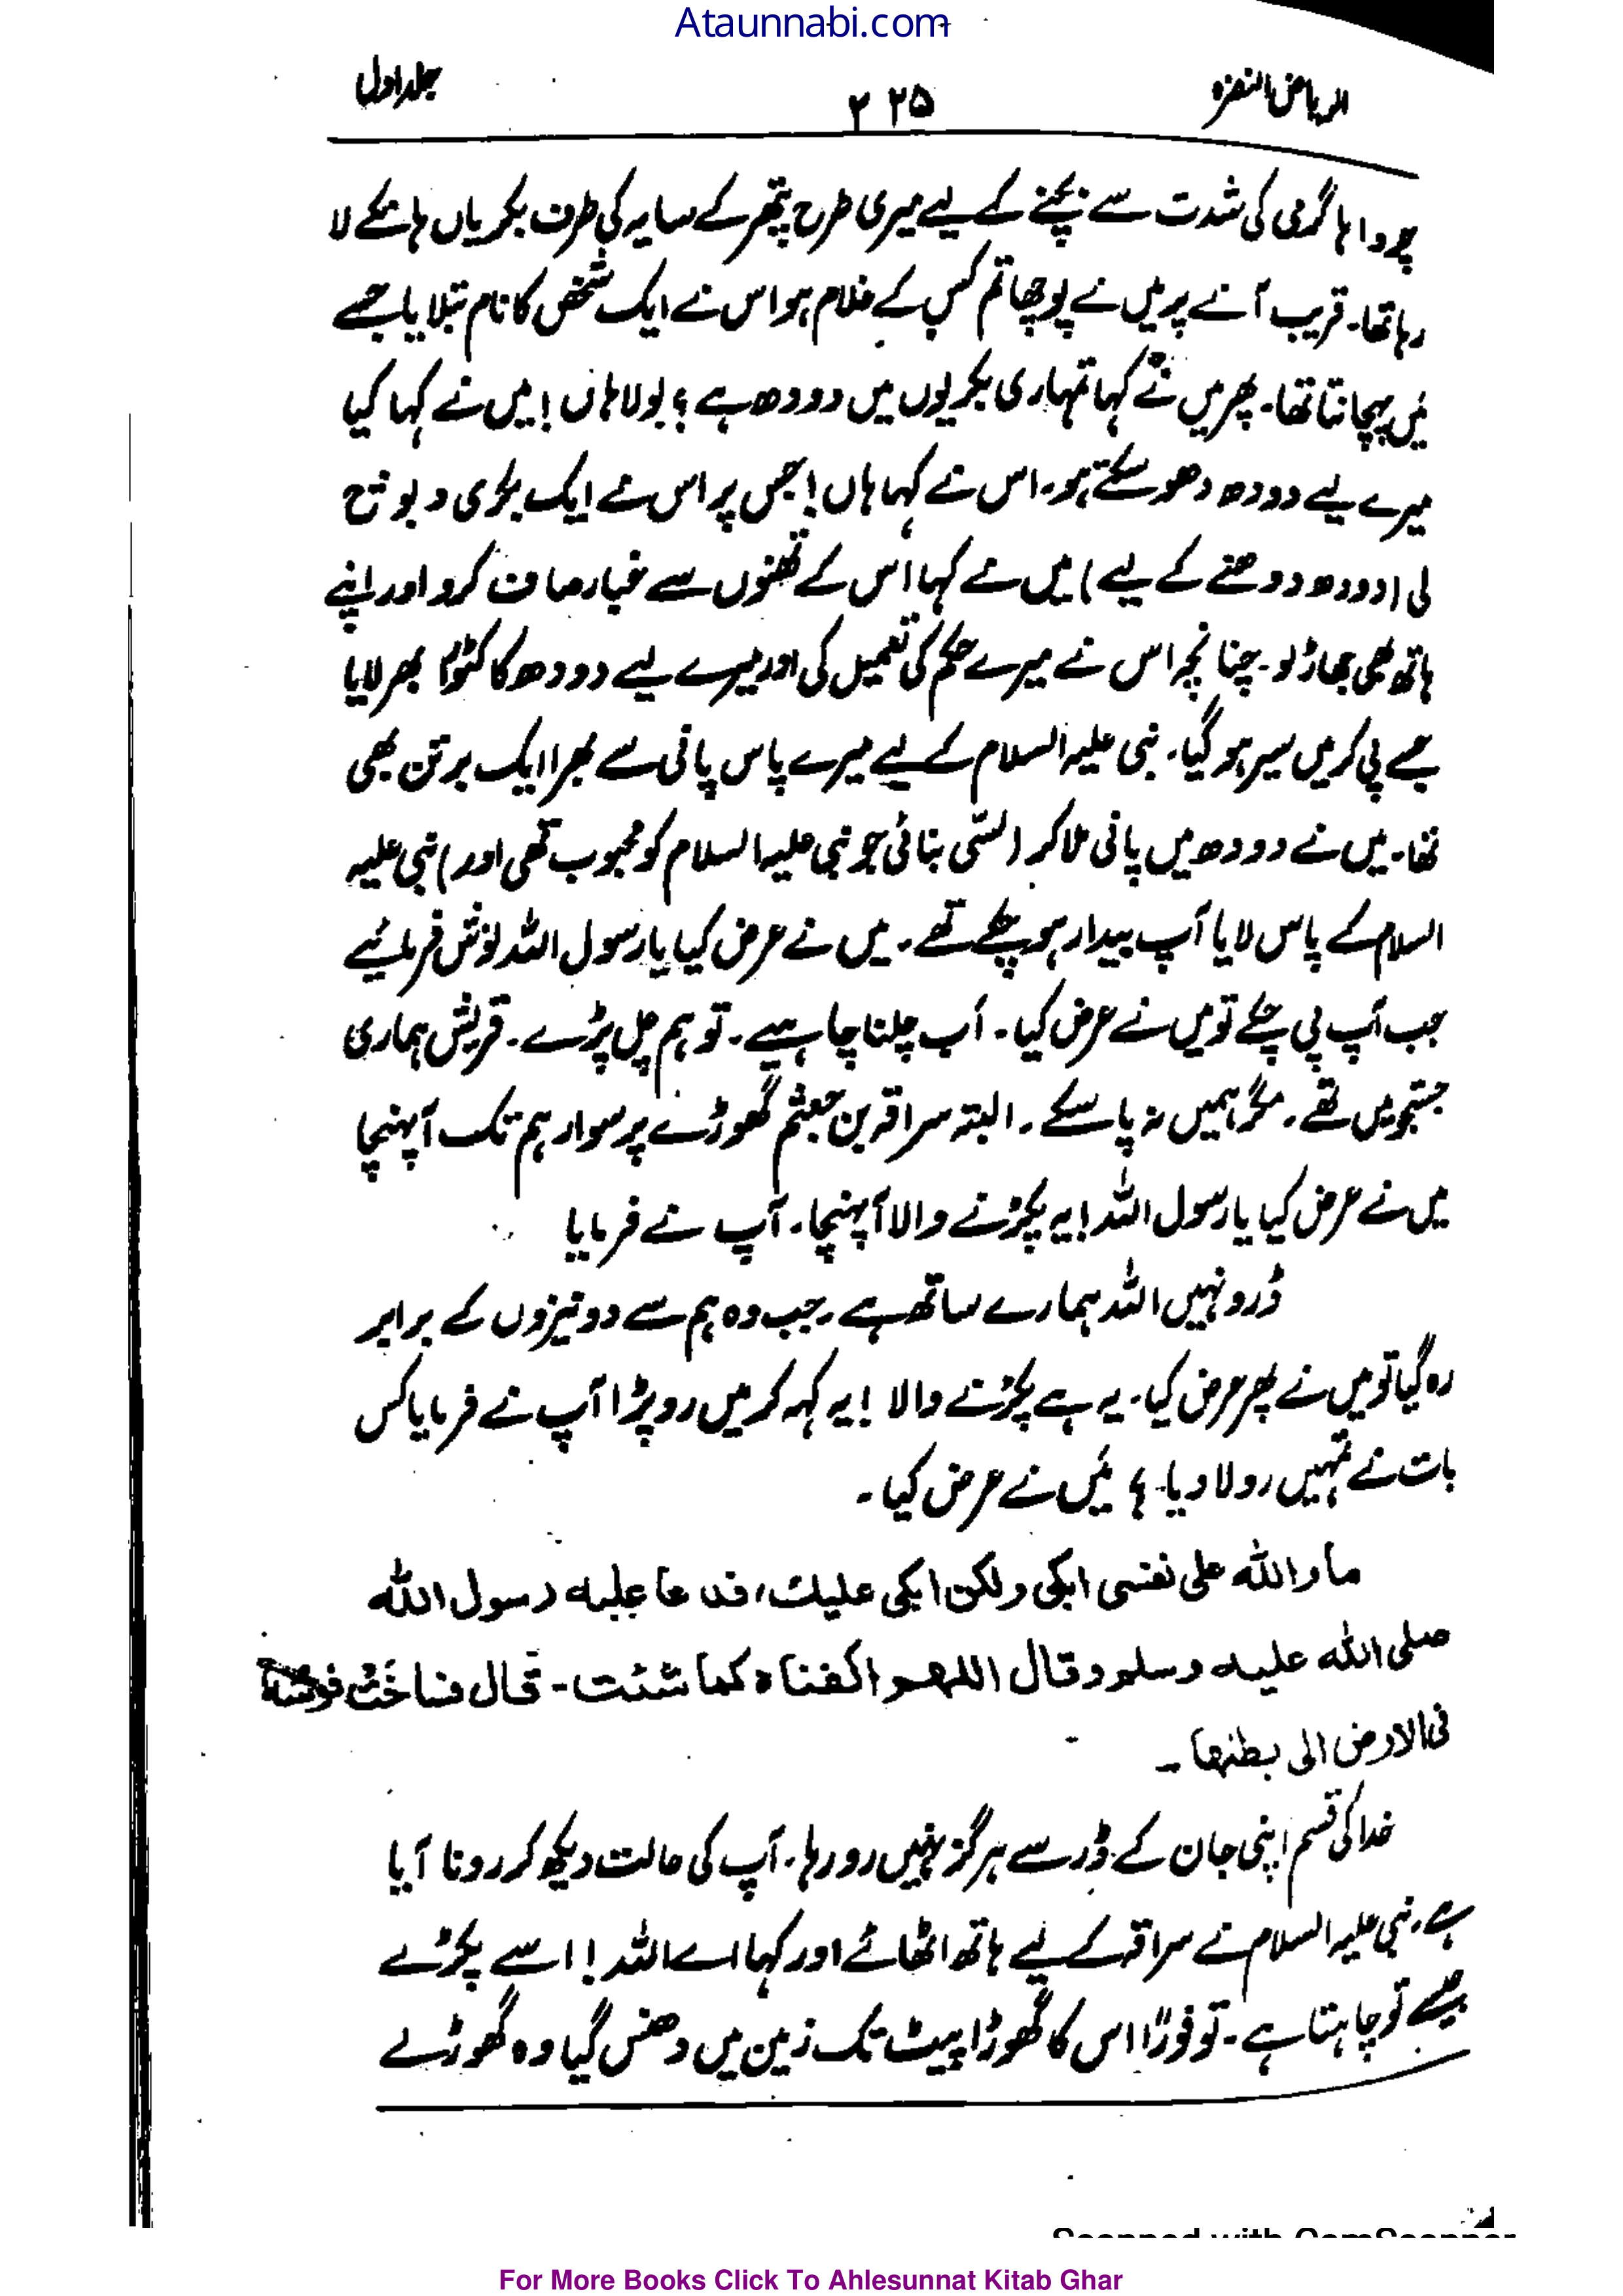 Ataunnabi.com
الریاض النضرہ ۲۲۵ جلد اول
چرواہا گرمی کی شدت سے بچنے کے لیے میری طرح پتھر کے سایہ کی طرف بکریاں ہانکے لا
رہا تھا۔ قریب آنے پر میں نے پوچھا تم کس کے غلام ہو اس نے ایک شخص کا نام بتلایا جسے
میں پہچانتا تھا۔ پھر میں نے کہا تمہاری بکریوں میں دودھ ہے؟ بولا ہاں! میں نے کہا کیا
میرے لیے دودھ دھو سکتے ہو۔ اس نے کہا ہاں! جس پر اس نے ایک بکری دبوچ
لی (دودھ دوھنے کے لیے) میں نے کہا اس کے تھنوں سے غبار صاف کرو اور اپنے
ہاتھ بھی جھاڑ لو۔ چنانچہ اس نے میرے حکم کی تعمیل کی اور میرے لیے دودھ کا کٹورا بھر لایا
جسے پی کر میں سیر ہو گیا۔ نبی علیہ السلام کے لیے میرے پاس پانی سے بھرا ایک برتن بھی
تھا۔ میں نے دودھ میں پانی ملا کر (لسّی بنائی جو نبی علیہ السلام کو محبوب تھی اور) نبی علیہ
السلام کے پاس لایا آپ بیدار ہو چکے تھے۔ میں نے عرض کیا یا رسول اللہ نوش فرمائیے
جب آپ پی چکے تو میں نے عرض کیا۔ اب چلنا چاہیے۔ تو ہم چل پڑے۔ قریش ہماری
جستجو میں تھے۔ مگر ہمیں نہ پا سکے۔ البتہ سراقہ بن جعثم گھوڑے پر سوار ہم تک آپہنچا
میں نے عرض کیا یا رسول اللہ! یہ پکڑنے والا آپہنچا۔ آپ نے فرمایا
ڈرو نہیں اللہ ہمارے ساتھ ہے۔ جب وہ ہم سے دو نیزوں کے برابر
رہ گیا تو میں نے پھر عرض کیا۔ یہ ہے پکڑنے والا! یہ کہہ کر میں رو پڑا آپ نے فرمایا کس
بات نے تمہیں رولا دیا؟ میں نے عرض کیا۔
ما واللہ علی نفسی ابکی ولکن ابکی علیک، فدعا علیہ رسول اللہ
صلی اللہ علیہ وسلم وقال اللھم اکفناہ کما شئت۔ قال فساخَتْ فرسہ
فی الارض الی بطنھا۔
خدا کی قسم اپنی جان کے ڈر سے ہرگز نہیں رو رہا۔ آپ کی حالت دیکھ کر رونا آیا
ہے۔ نبی علیہ السلام نے سراقہ کے لیے ہاتھ اٹھائے اور کہا اے اللہ! اسے پکڑے
جیسے تو چاہتا ہے۔ تو فوراً اس کا گھوڑا پیٹ تک زمین میں دھنس گیا وہ گھوڑے
For More Books Click To Ahlesunnat Kitab Ghar